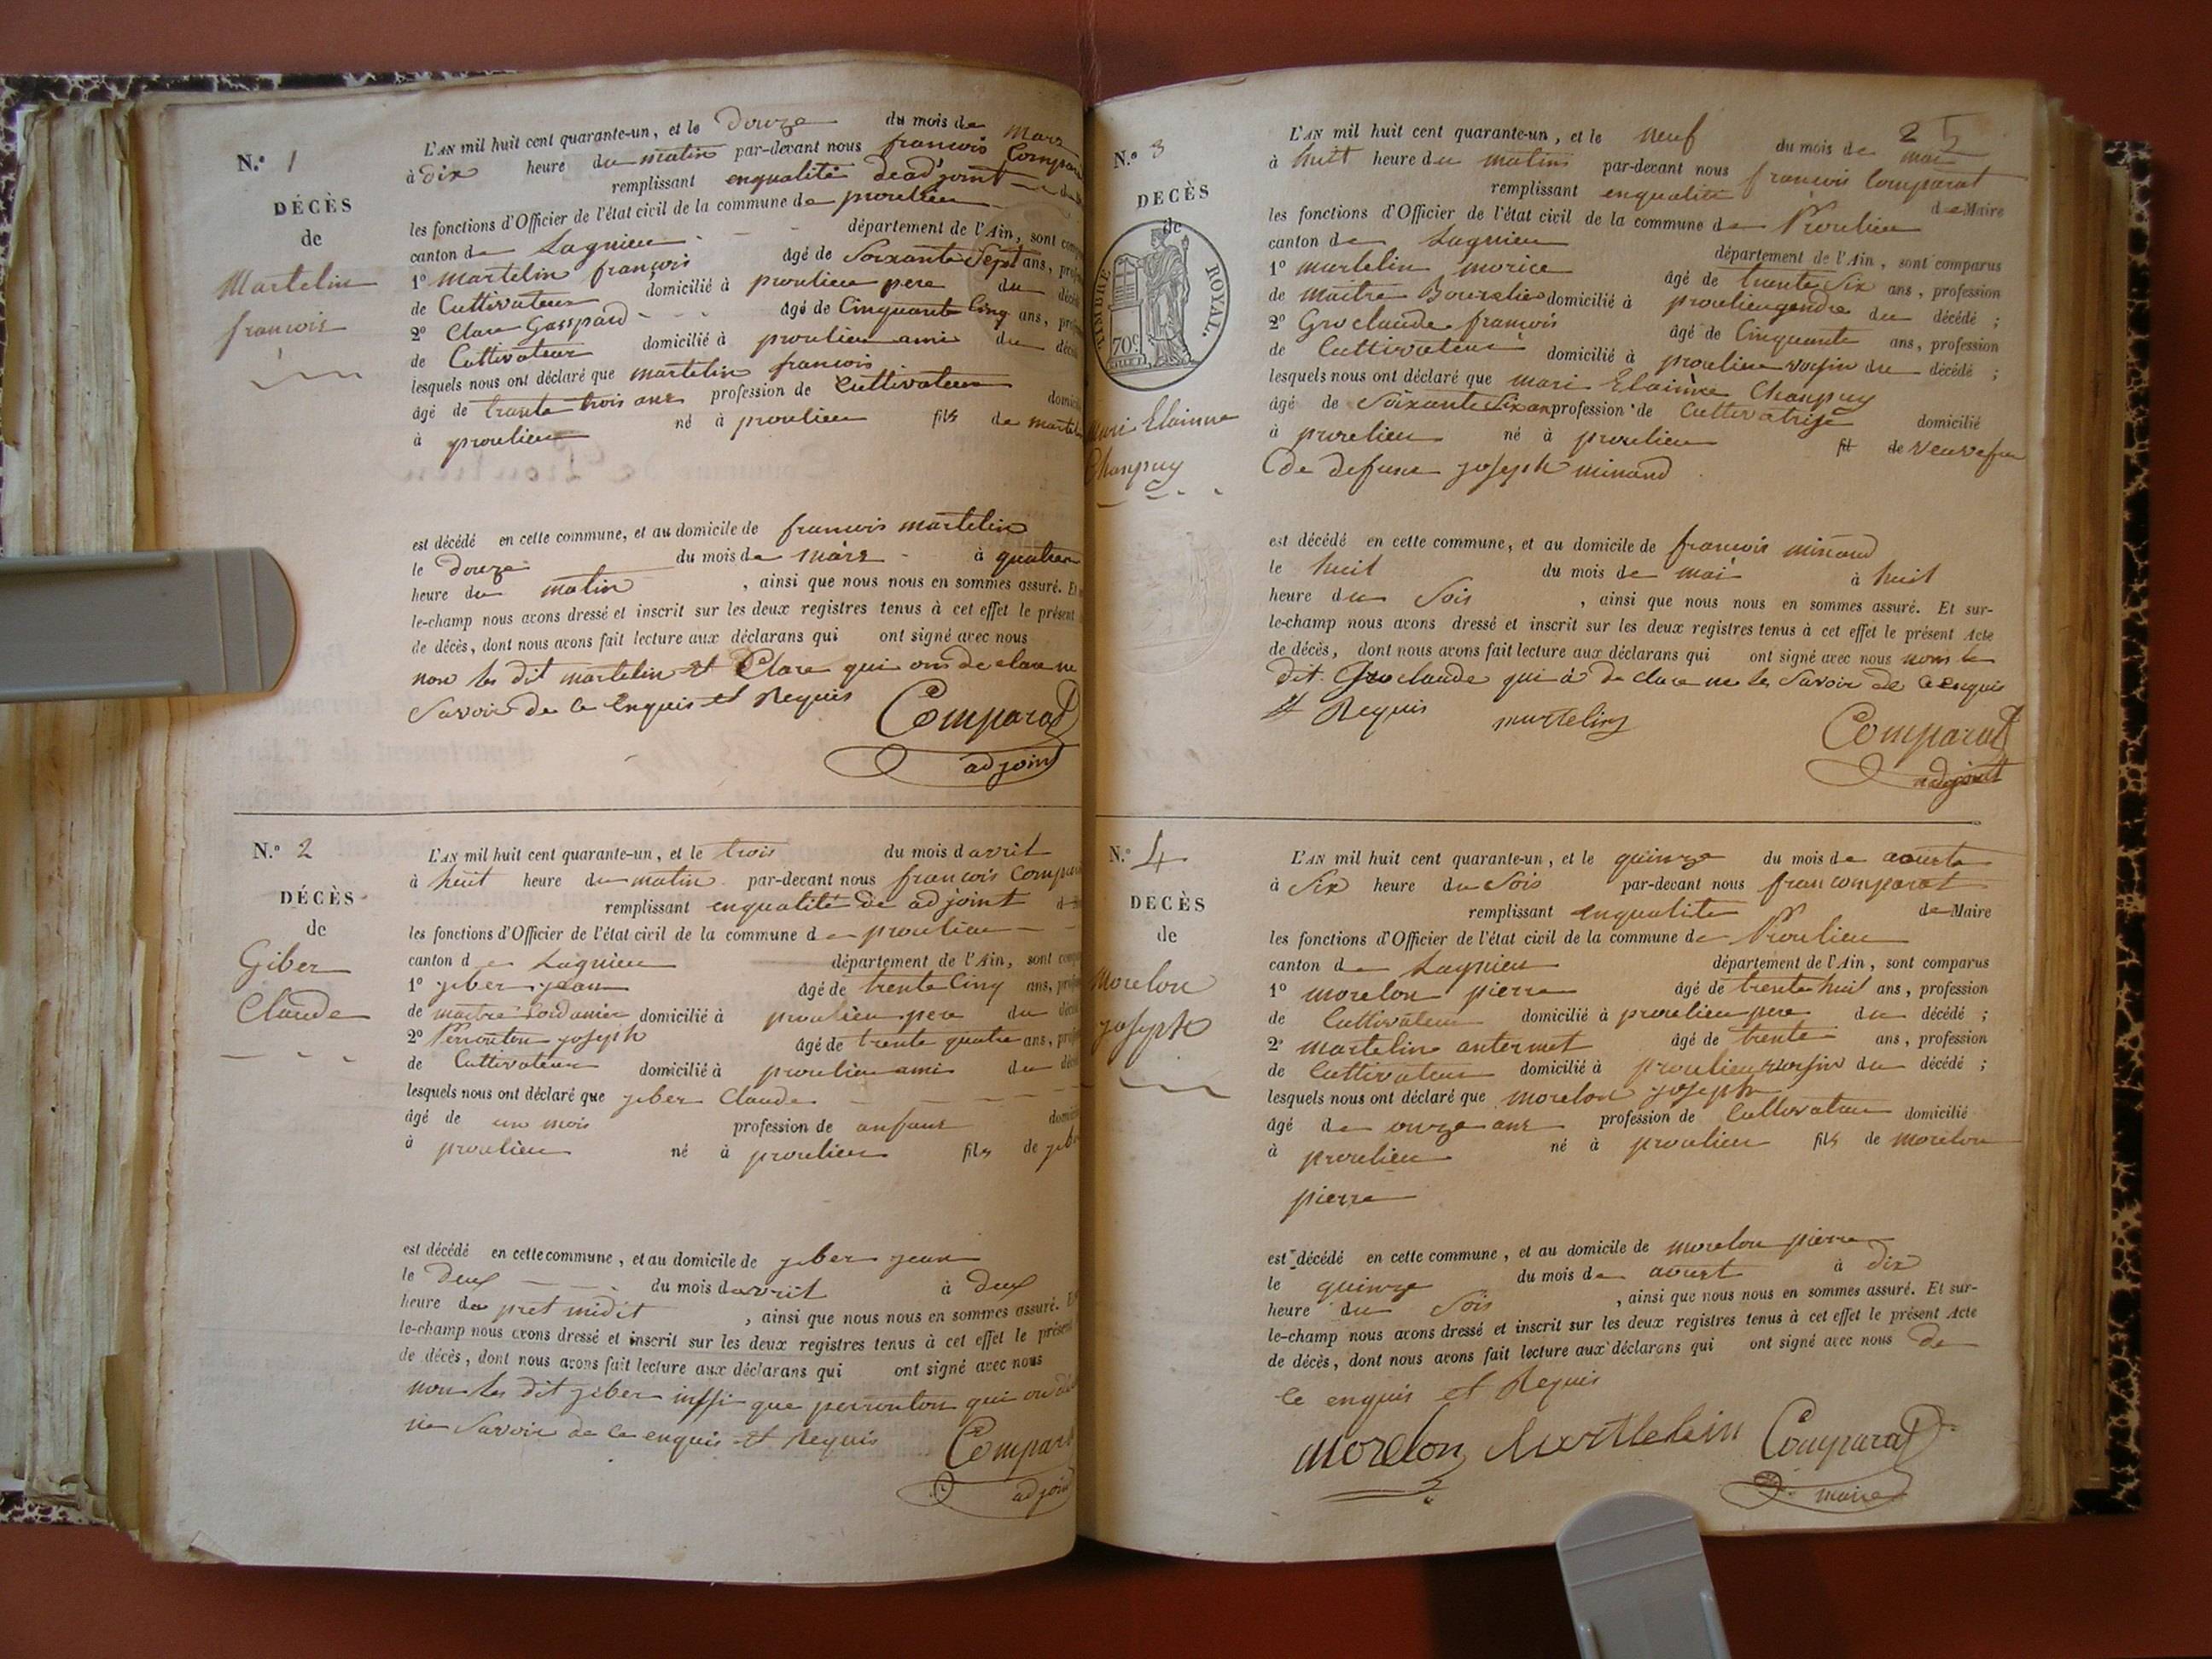 N.º 1
DÉCÈS
de
Martelin
francois
L'AN mil huit cent quarante-un, et le Douze du mois de mars
à Dix heure du matin par-devant nous francois Compar
remplissant enqualité deadjoint
les fonctions d'Officier de l'état civil de la commune de proulieu
canton de Lagnieu département de l'Ain, sont comp
1º martelin françois âgé de Soixante Sept ans, profes
de Cultivateur domicilié à proulieu pere du décéd
2º Clare Gaspard âgé de Cinquante Cinq ans, pro
de Cultivateur domicilié à proulieu ami du décéd
lesquels nous ont déclaré que martelin francois
âgé de trante trois ans profession de Cultivateur domicil
à proulieu né à proulieu fils de martel
est décédé en cette commune, et au domicile de francois martelin
le Douze du mois de mars à quatre
heure du matin , ainsi que nous nous en sommes assuré. Et
le-champ nous avons dressé et inscrit sur les deux registres tenus à cet effet le présent
de décès, dont nous avons fait lecture aux déclarans qui ont signé avec nous
non les dit martelin et Clare qui ons declare ne
Savoir de ce Enquis et Requis
Comparat
adjoint
N.º 2
DÉCÈS
de
Giber
Claude
L'AN mil huit cent quarante-un, et le trois du mois d avril
à huit heure du matin par-devant nous francois Compar
remplissant enqualité de adjoint
les fonctions d'Officier de l'état civil de la commune de proulieu
canton de Lagnieu département de l'Ain, sont comp
1º giber jean âgé de trente Cinq ans, profes
de maitre Cordonier domicilié à proulieu pere du décé
2º Perrouton joseph âgé de trente quatre ans, profe
de Cultivateur domicilié à proulieu ami du décé
lesquels nous ont déclaré que giber Claude
âgé de un mois profession de anfant domici
à proulieu né à proulieu fils de gibe
est décédé en cette commune, et au domicile de giber jean
le Deux du mois davril à Deux
heure da pret midit , ainsi que nous nous en sommes assuré. Et
le-champ nous avons dressé et inscrit sur les deux registres tenus à cet effet le présent
de décès, dont nous avons fait lecture aux déclarans qui ont signé avec nous
non les dit giber inssi que perrouton qui on dé
ne Savoir de ce enquis et Requis
Comparat
adjoint
2
N.º 3
DECÈS
de
TIMBRE ROYAL.
70c
mari Elainne
Chanpuy
L'AN mil huit cent quarante-un, et le neuf du mois de mai
à huit heure du matin par-devant nous francois Comparat
remplissant enqualite de Maire
les fonctions d'Officier de l'état civil de la commune de Proulieu
canton de Lagnieu département de l'Ain, sont comparus
1º martelin morice âgé de trente Six ans, profession
de maitre Bourelier domicilié à proulieu gendre du décédé ;
2º Groclaude francois âgé de Cinquante ans, profession
de Cultivateur domicilié à proulieu voisin du décédé ;
lesquels nous ont déclaré que mari Elainne Chanpuy
âgé de Soixante Six an profession de Cultivatrise domicilié
à proulieu né à proulieu fil de veuvefue
de defunc joseph minand
est décédé en cette commune, et au domicile de francois minand
le huit du mois de mai à huit
heure du Sois , ainsi que nous nous en sommes assuré. Et sur-
le-champ nous avons dressé et inscrit sur les deux registres tenus à cet effet le présent Acte
de décès, dont nous avons fait lecture aux déclarans qui ont signé avec nous nom le
dit Groclaude qui à declare ne les Savoir de ce enquis
et Requis martelin
Comparat
adjoint
N.º 4
DECÈS
de
Morelon
joseph
L'AN mil huit cent quarante-un, et le quinze du mois de aouste
à Six heure du Sois par-devant nous fran comparat
remplissant enqualite de Maire
les fonctions d'Officier de l'état civil de la commune de Proulieu
canton de Lagnieu département de l'Ain, sont comparus
1º morelon pierre âgé de trente huit ans, profession
de Cultivateur domicilié à proulieu pere du décédé ;
2º martelin antermet âgé de trente ans, profession
de Cultivateur domicilié à proulieu voisin du décédé ;
lesquels nous ont déclaré que morelon joseph
âgé de onze ans profession de Cultivateur domicilié
à proulieu né à proulieu fils de morelon
pierre
est décédé en cette commune, et au domicile de morelon pierre
le quinze du mois de aoust à dix
heure du Sois , ainsi que nous nous en sommes assuré. Et sur-
le-champ nous avons dressé et inscrit sur les deux registres tenus à cet effet le présent Acte
de décès, dont nous avons fait lecture aux déclarans qui ont signé avec nous de
ce enquis et Requis
morelon Martlelin Comparat
maire